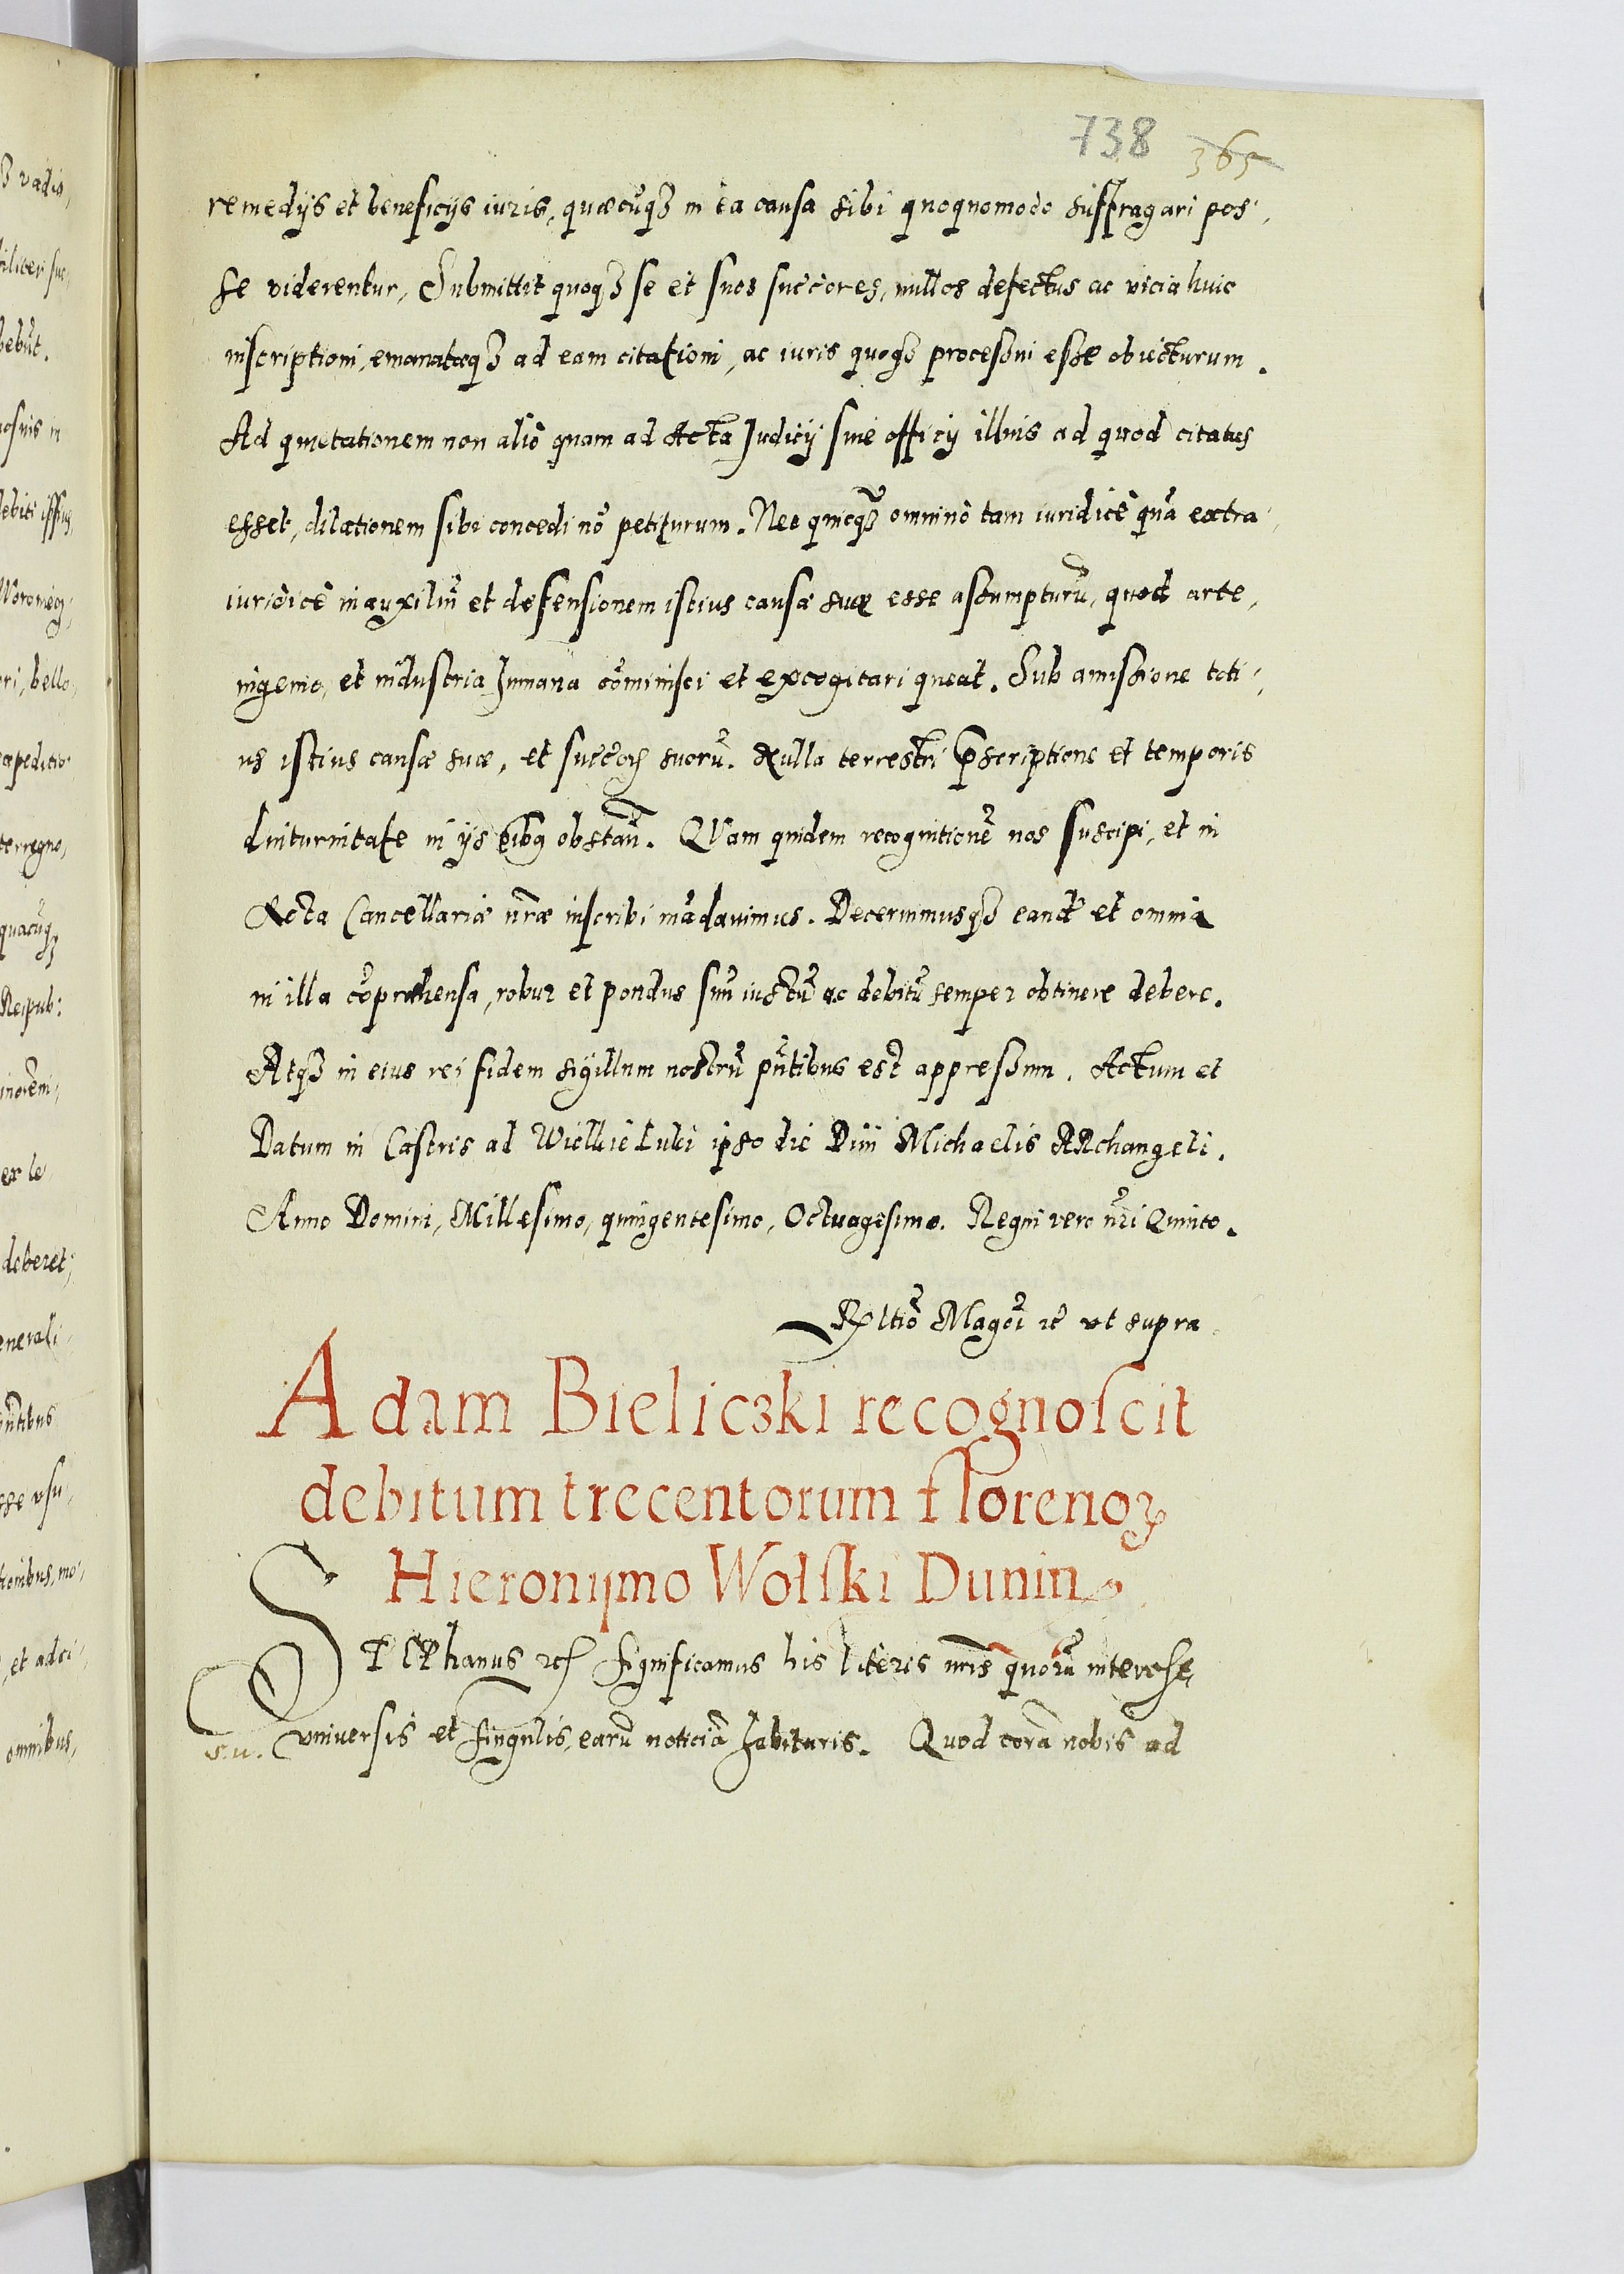 738 365
remedijs et beneficijs iuris, quæcũqꝫ in ea causa sibi quoquomodo suffragari pos,
se viderentur, Submittit quoqꝫ se et suos succores, nullos defectus ac vicia huic
inscriptioni, emanatæqꝫ ad eam citationi, ac iuris quoqꝫ processui esse obiecturum.
Ad quietationem non aliò quam ad Acta Judicij siue officij illius ad quod citatus
esset, dilationem sibi concedi nõ petiturum. Nec quicqꝫ omninò tam iuridicè quã extra,
iuridicè in auxiliũ et defensionem istius causæ suæ esse assumpturũ, quod arte,
ingenio, et industria humana cõminisci et excogitari queat. Sub amissione toti,
us istius causæ suæ, et succoꝝ suorũ. Nulla terrestri p̃scriptione et temporis
diuturnitate in ijs obstañ. QVam quidem recognitionẽ nos suscipi, et in
Acta Cancellariæ nr̃æ inscribi mãdauimus. Decernimusqꝫ eand̃ et omnia
in illa cõprehensa, robur et pondus suũ iustũ ac debitũ semper obtinere debere.
Atqꝫ in eius rei fidem sigillum nostrũ pñtibus est appressum. Actum et
Datum in Castris ad Wielkie Luki ipso die Diui Michaelis ARchangeli.
Anno Domini, Millesimo, quingentesimo, Octuagesimo. Regni vero nr̃i Quinto.
Rltiõ Magci ꝛc̃ vt supra
Adam Bieliczki recognoscit
debitum trecentorum florenoꝝ
Hieronymo Wolski Dunin
STEPhanus ꝛcꝭ significamus his literis nr̃is quorũ interest,
s.u. vniuersis et singulis, earũ noticiã habituris. Quod corã nobis ad
vadis,
debũt.
bello,
terregno,
Reipub:
ex le
deberet;
et adci,
omnibus,